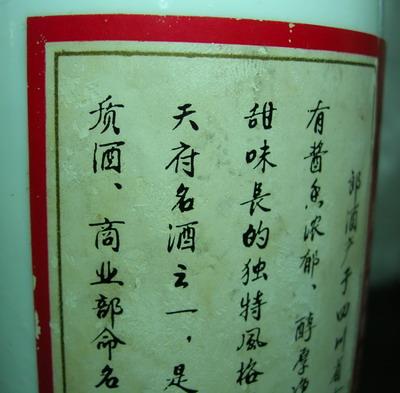 郎酒产于四川省
有酱香浓郁、醇厚净
甜味長的独特風格
天府名酒之一，是
质酒、商业部命名